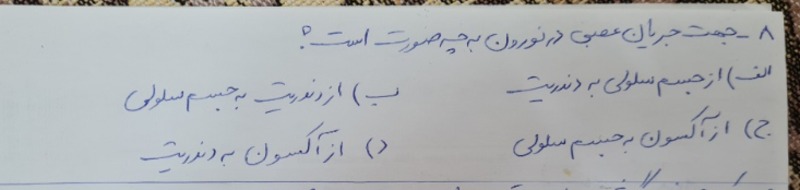 ۸ـ جهت جریان عصبی در نورون به چه صورت است؟
الف) از جسم سلولی به دندریت ب) از دندریت به جسم سلولی
ج) از آکسون به جسم سلولی د) از آکسون به دندریت